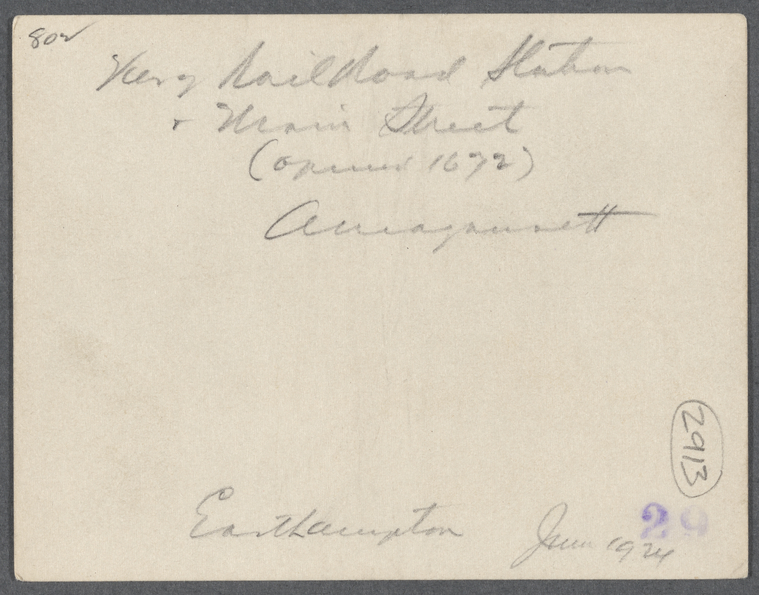 802
View of Rail Road Station
+ Main Street
(opened 1672)
Amagansett
2913
29
Easthampton June 1924